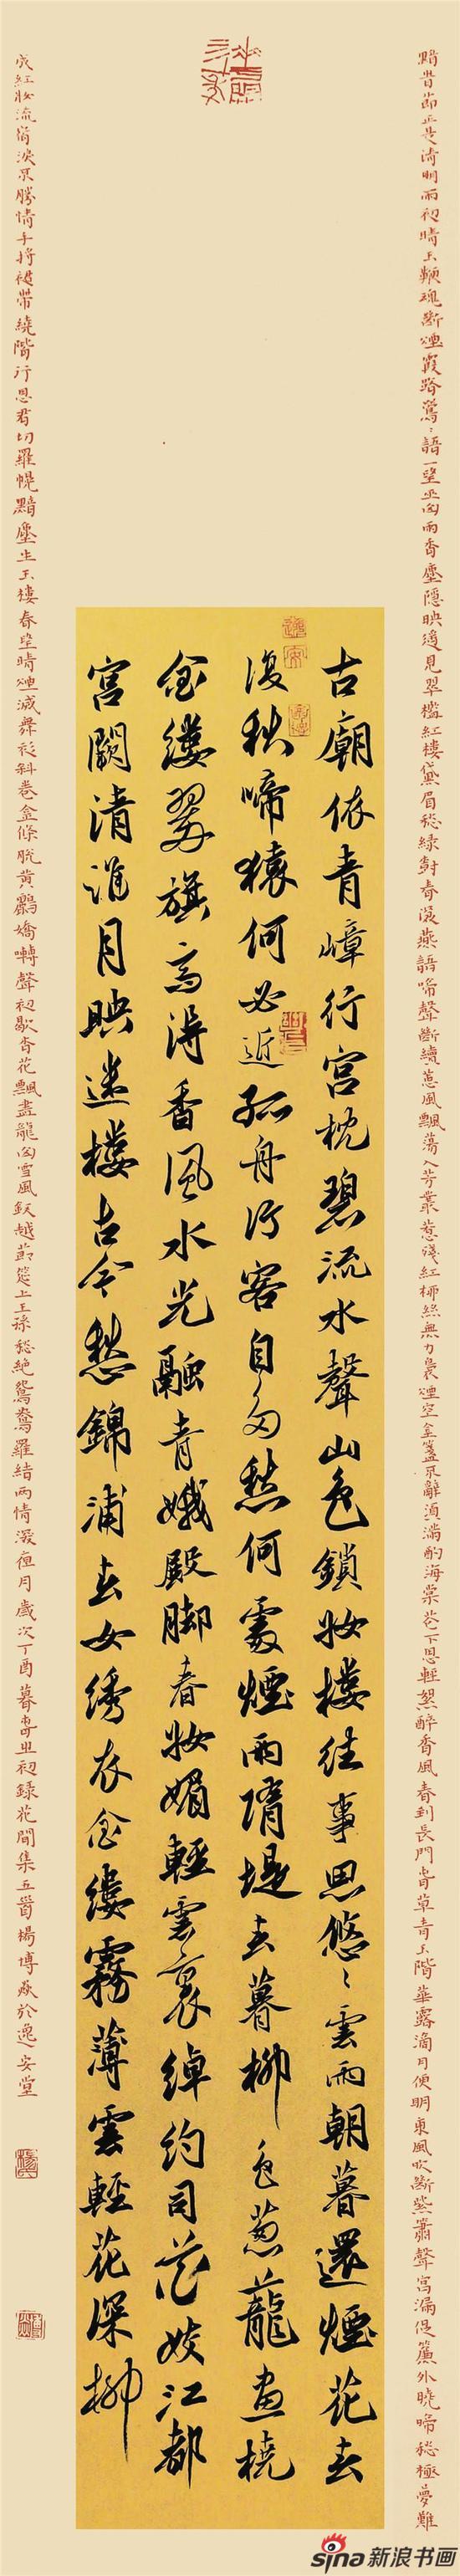 黯時節正是清明雨初晴玉鞭魂斷煙霞路鶯〻語一望巫山雨香塵隱映遙見翠檻紅樓黛眉愁綠樹春深燕語啼聲斷續蕙風飄蕩入芳叢惹殘紅柳絲無力裊煙空金盞不辭須滿酌海棠花下思醉香風春到長門春草青玉階華露滴月明東風吹斷紫簫聲宮漏促簾外曉啼愁極夢難
古廟依青嶂行宮枕碧流水聲山色鎖妝樓往事思悠〻雲雨朝暮還煙花春
復秋啼猿何必近孤舟行客自多愁何處煙雨隋堤春暮柳色蔥蘢畫橈
金縷翠旗高颭香風水光融青娥殿脚春妝媚輕雲裏綽約司花妓江都
宮闕清淮月映迷樓古今愁錦浦春女繡衣金縷霧薄雲輕花深柳
成紅妝流宿淚不勝情手挼裙帶繞階行思君切羅幌黯塵生玉樓春望晴煙滅舞衫斜卷金條脫黃鸝嬌囀聲初歇杏花飄盡龍山雪鳳釵越節筵上王孫愁絕鴛鴦羅結兩情深夜月歲次丁酉暮春之初錄花間集五首楊博焱於逸安堂
sina新浪书画